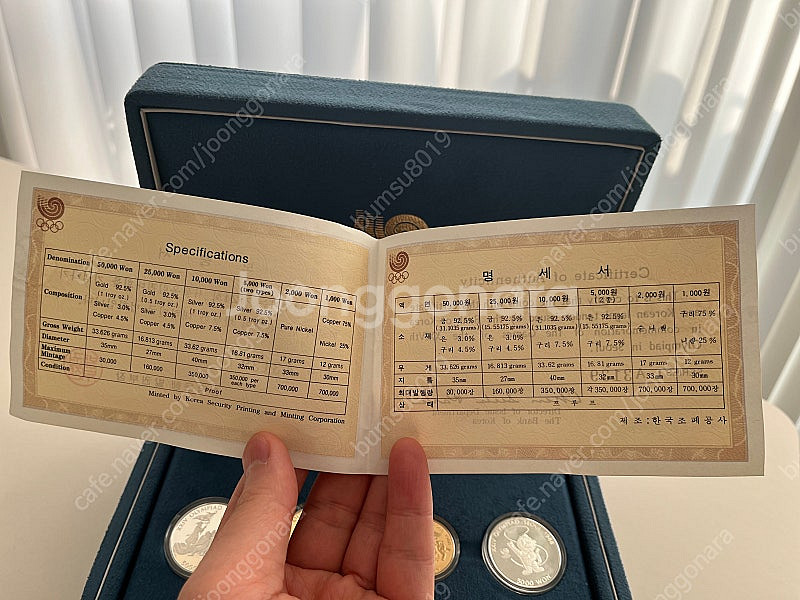 Specifications
Denomination 50,000 Won 25,000 Won 10,000 Won 5,000 Won (two types) 2,000 Won 1,000 Won
Composition
Gold 92.5% (1 troy oz.) Silver 3.0% Copper 4.5%
Gold 92.5% (0.5 troy oz.) Silver 3.0% Copper 4.5%
Silver 92.5% (1 troy oz.) Copper 7.5%
Silver 92.5% (0.5 troy oz.) Copper 7.5%
Pure Nickel
Copper 75% Nickel 25%
Gross Weight 33.626 grams 16.813 grams 33.62 grams 16.81 grams 17 grams 12 grams
Diameter 35mm 27mm 40mm 32mm 33mm 30mm
Maximum Mintage 30,000 160,000 350,000 350,000 per each type 700,000 700,000
Condition Proof
Minted by Korea Security Printing and Minting Corporation
명 세 서
액 면 50,000원 25,000원 10,000원 5,000원 (2종) 2,000원 1,000원
소 재
금 92.5% (31.1035 grams) 은 3.0% 구리 4.5%
금 92.5% (15.55175grams) 은 3.0% 구리 4.5%
은 92.5% (31.1035 grams) 구리 7.5%
은 92.5% (15.55175grams) 구리 7.5%
순 니 켈
구리 75% 니켈 25%
무 게 33.626 grams 16.813 grams 33.62 grams 16.81 grams 17 grams 12 grams
지 름 35mm 27mm 40mm 32mm 33mm 30mm
최대발행량 30,000장 160,000장 350,000장 각 350,000장 700,000장 700,000장
상 태 프 루 프
제조:한국조폐공사
5000 WON
joonggonara
cafe.naver.com/joonggonara
bumsu8019